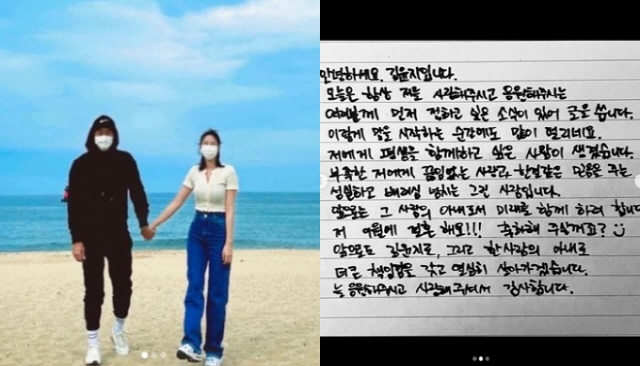 안녕하세요. 김윤지입니다.
오늘은 항상 저를 사랑해주시고 응원해주시는
여러분께 먼저 전하고 싶은 소식이 있어 글을 씁니다.
이렇게 말을 시작하는 순간에도 많이 떨리네요.
저에게 평생을 함께하고 싶은 사람이 생겼습니다.
부족한 저에게 끊임없는 사랑과 한결같은 믿음을 주는
성실하고 배려심 넘치는 그런 사람입니다.
앞으로는 그 사람의 아내로서 미래를 함께 하려 합니다
저 9월에 결혼 해요!!! 축하해 주실꺼죠?
앞으로도 김윤지로, 그리고 한 사람의 아내로
더욱 책임감을 갖고 열심히 살아가겠습니다.
늘 응원해주시고 사랑해 주셔서 감사합니다.